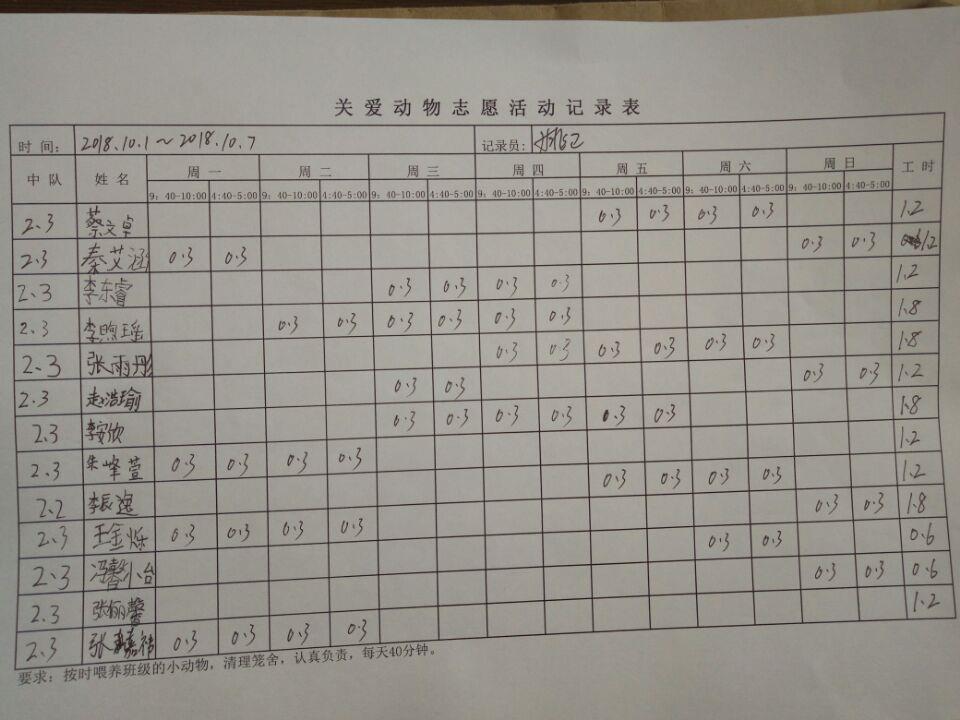 关爱动物志愿活动记录表
时间： 2018.10.1～2018.10.7 记录员:
中队 姓名 周一 周二 周三 周四 周五 周六 周日 工时
9：40-10:00 4:40-5:00 9：40-10:00 4:40-5:00 9：40-10:00 4:40-5:00 9：40-10:00 4:40-5:00 9：40-10:00 4:40-5:00 9：40-10:00 4:40-5:00 9：40-10:00 4:40-5:00
2.3 蔡文卓 0.3 0.3 0.3 0.3 1.2
2.3 秦艾涵 0.3 0.3 0.3 0.3 1.2
2.3 李东睿 0.3 0.3 0.3 0.3 1.2
2.3 李煦瑶 0.3 0.3 0.3 0.3 0.3 0.3 1.8
2.3 张雨彤 0.3 0.3 0.3 0.3 0.3 0.3 1.8
2.3 赵浩瑜 0.3 0.3 0.3 0.3 1.2
2.3 李安欣 0.3 0.3 0.3 0.3 0.3 0.3 1.8
2.3 朱峰萱 0.3 0.3 0.3 0.3 1.2
2.2 李辰逸 0.3 0.3 0.3 0.3 1.2
2.3 王金烁 0.3 0.3 0.3 0.3 0.3 0.3 1.8
2.3 冯馨 0.3 0.3 0.6
2.3 张俪馨 0.3 0.3 0.6
2.3 张嘉祎 0.3 0.3 0.3 0.3 1.2
要求：按时喂养班级的小动物，清理笼舍，认真负责，每天40分钟。